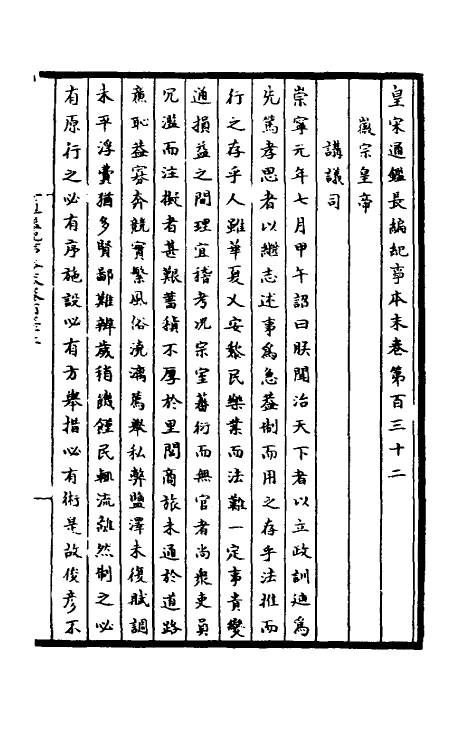 皇宋通鑑長編紀事本末卷第百三十二
徽宗皇帝
講議司
崇寧元年七月甲午詔曰朕聞治天下者以立政訓迪爲
先篤孝思者以繼志述事爲急蓋制而用之存乎法推而
行之存乎人雖華夏乂安黎民樂業而法難一定事貴變
通損益之間理宜稽考况宗室蕃衍而無官者尚衆吏員
冗濫而注擬者甚艱蓄積不厚於里閭商旅未通於道路
廉恥蓋寡奔競實繁風俗澆漓薦舉私弊鹽澤未復賦調
未平浮費猶多賢鄙難辨歲稍饑饉民輒流離然制之必
有原行之必有序施設必有方舉措必有術是故俊彦不